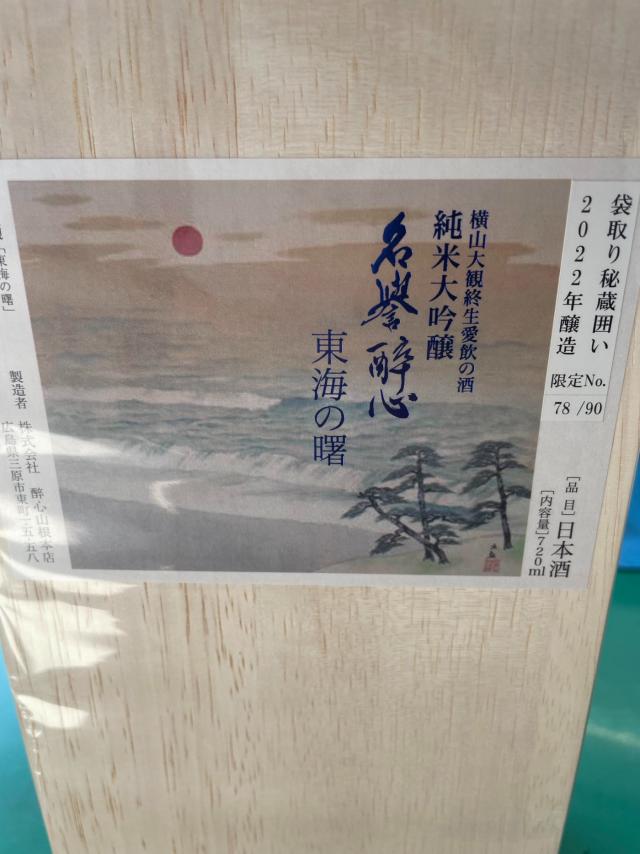 袋取り秘蔵囲い
2022年醸造
限定No.
78 /90
横山大観終生愛飲の酒
純米大吟醸
名誉醉心
東海の曙
［品 目］日本酒
［内容量］720ml
「東海の曙」
製造者 株式会社 醉心山根本店
広島県三原市東町一五五八